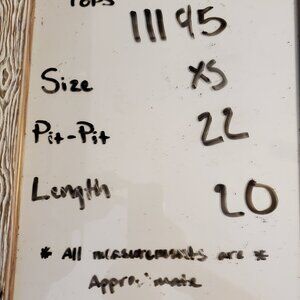 Tops
11195
Size XS
Pit-Pit 22
Length 20
* All measurements are *
Approximate